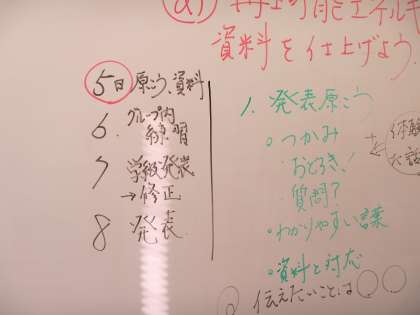 再生可能エネルギ
資料を仕上げよう.
5日 原こう、資料
6. グループ内
練習
7 学級発表
→修正
8 発表
1. 発表原こう
・つかみ
おどろき!
質問?
・わかりやすい言葉
・資料と対応
伝えたいことは○○
体験